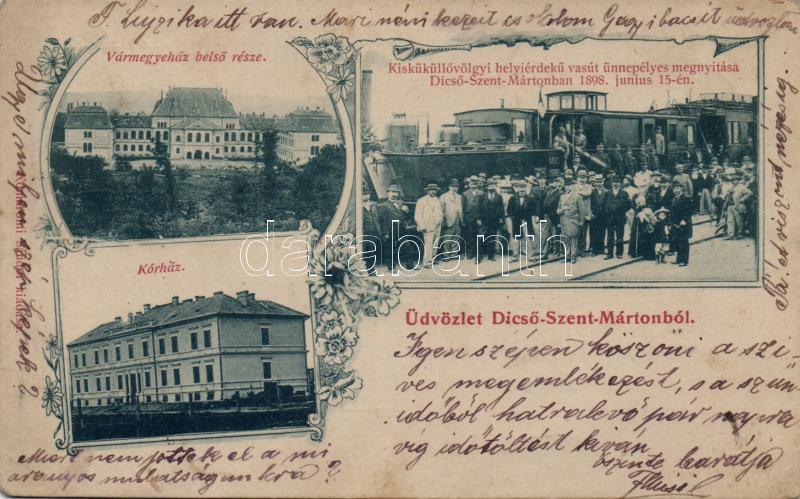 F. Lujzika itt van. Mari néni kezeit csókolom Gazsi bácsit üdvözlom
Vármegyeház belső része.
Kisküküllővölgyi helyiérdekű vasút ünnepélyes megnyitása
Dicső-Szent-Mártonban 1898. junius 15-én.
Kórház.
darabanth
Üdvözlet Dicső-Szent-Mártonból.
Igen szépen köszöni a szi-
ves megemlékezést, s a szün-
időből hatralevő pár napra
vig időtöltést kiván
őszinte barátja
Miért nem jöttek el a mi
aranyos mulatságunkra?
Ugye mily szép képek?